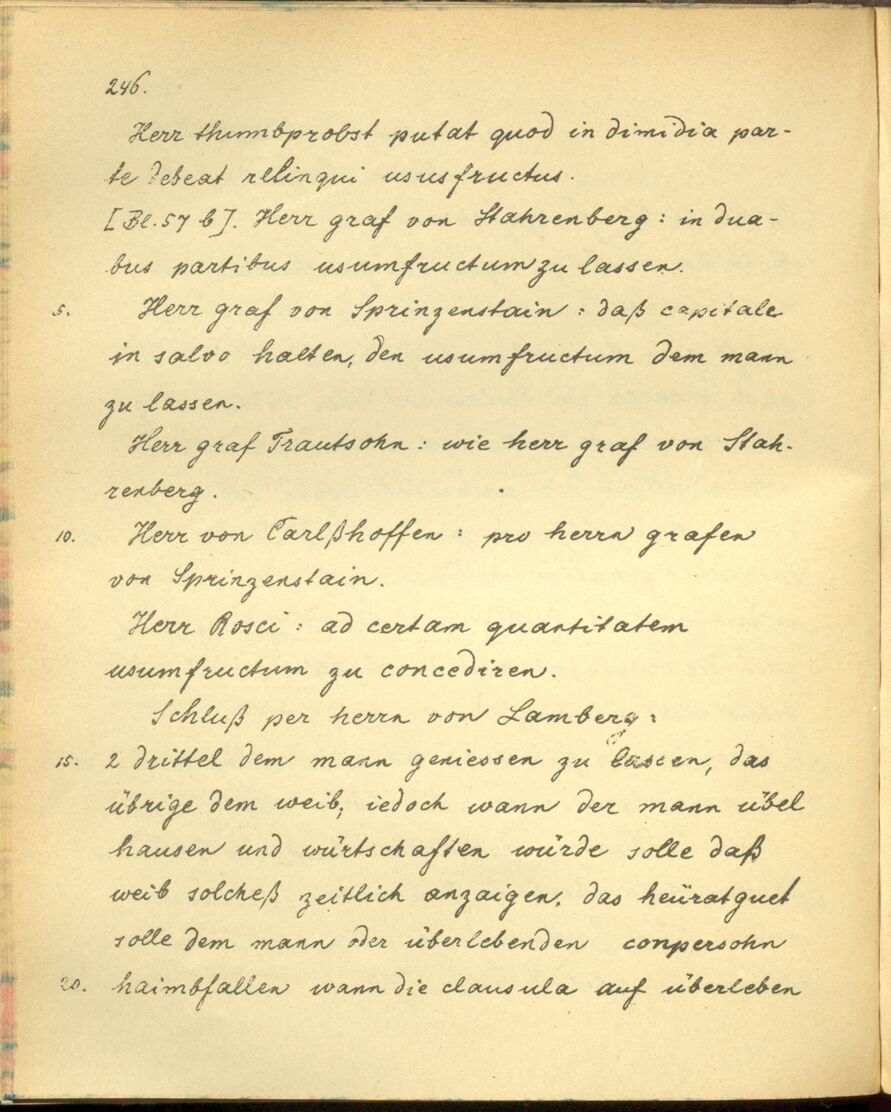 246.
Herr thumbprobst putat quod in dimidia par-
te debeat relinqui ususfructus.
[Bl. 57 b]. Herr graf von Stahrenberg: in dua-
bus partibus usumfructum zu lassen.
5. Herr graf von Sprinzenstain: daß capitale
in salvo halten, den usumfructum dem mann
zu lassen.
Herr graf Trautsohn: wie herr graf von Stah-
renberg.
10. Herr von Carlßhoffen: pro herrn grafen
von Sprinzenstain.
Herr Rosci: ad certam quantitatem
usumfructum zu concediren.
Schluß per herrn von Lamberg:
15. 2 drittel dem mann geniessen zu lassen, das
übrige dem weib; iedoch wann der mann übel
hausen und würtschaften würde solle daß
weib solcheß zeitlich anzaigen, das heüratguet
solle dem mann oder überlebenden conpersohn
20. haimbfallen wann die clausula auf überleben